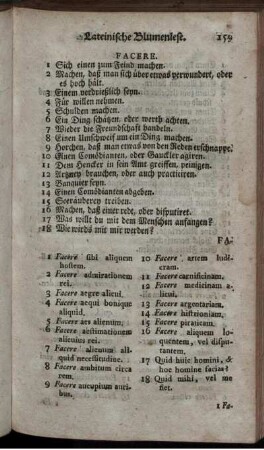 Lateinische Blumenlese. 159
FACERE.
1 Sich einen zum Feind machen.
2 Machen, daß man sich über etwas verwundert, oder
es hoch hält.
3 Einem verdrießlich seyn.
4 Für willen nehmen.
5 Schulden machen.
6 Ein Ding schätzen, oder werth achten.
7 Wieder die Freundschaft handeln.
8 Einen Umschweif um ein Ding machen.
9 Horchen, daß man etwas von den Reden erschnappe.
10 Einen Comödianten, oder Gauckler agiren.
11 Dem Hencker in sein Amt greiffen, peinigen.
12 Artzney brauchen, oder auch practiciren.
13 Banquier seyn.
14 Einen Comödianten abgeben.
15 Seeräuberey treiben.
16 Machen, daß einer redt, oder disputiret.
17 Was willt du mit dem Menschen anfangen?
18 Wie wirds mit mir werden?
FA-
1 Facere sibi aliquem
hostem.
2 Facere admirationem
rei.
3 Facere aegre alicui.
4 Facere aequi bonique
aliquid.
5 Facere aes alienum.
6 Facere aestimationem
alicuius rei.
7 Facere alienum ali-
quid necessitudine.
8 Facere ambitum circa
rem.
9 Facere aucupium auri-
bus.
10 Facere artem ludi-
cram.
11 Facere carnificinam.
12 Facere medicinam a-
licui.
13 Facere argentariam.
14 Facere histrioniam.
15 Facere piraticam.
16 Facere aliquem lo-
quentem, vel dispu-
tantem.
17 Quid huic homini, &
hoc homine facias?
18 Quid mihi, vel me
fiet.
1 Fa-